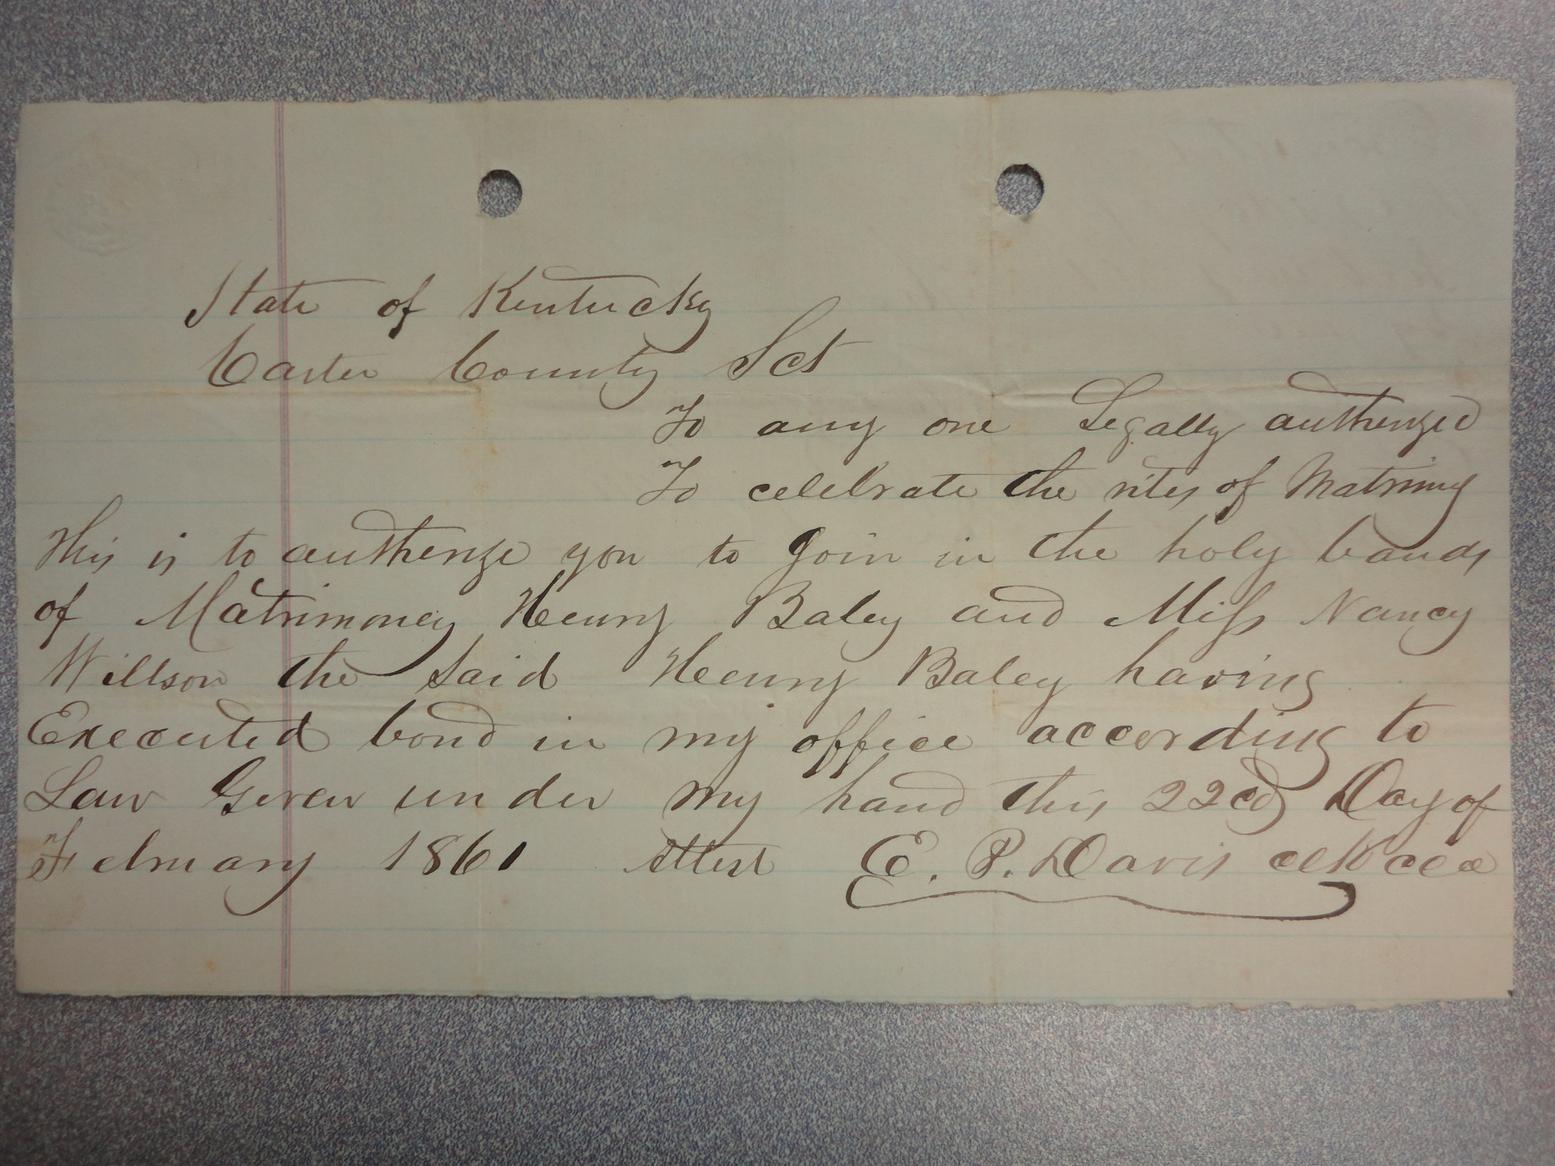 State of Kentucky
Carter County Sct
To any one Legally autherized
To celebrate the rites of Matrimony
This is to autherize you to Join in the holy bands
of Matrimoney Henry Baley and Miss Nancy
Willson the Said Henry Baley having
Executed bond in my office according to
Law Given under my hand this 22cd Day of
February 1861 Attest E. P. Davis clk